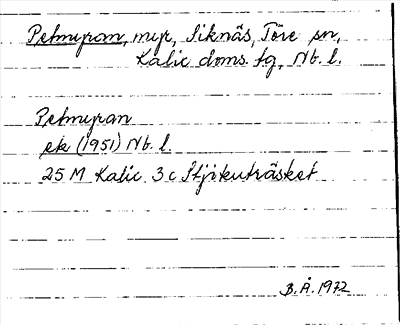 Petmyran, myr, Siknäs, Töre sn,
Kalix doms. tg, Nb. l.
Petmyran
ek (1951) Nb. l.
25 M Kalix 3 c Stjikuträsket
B. Å. 1972